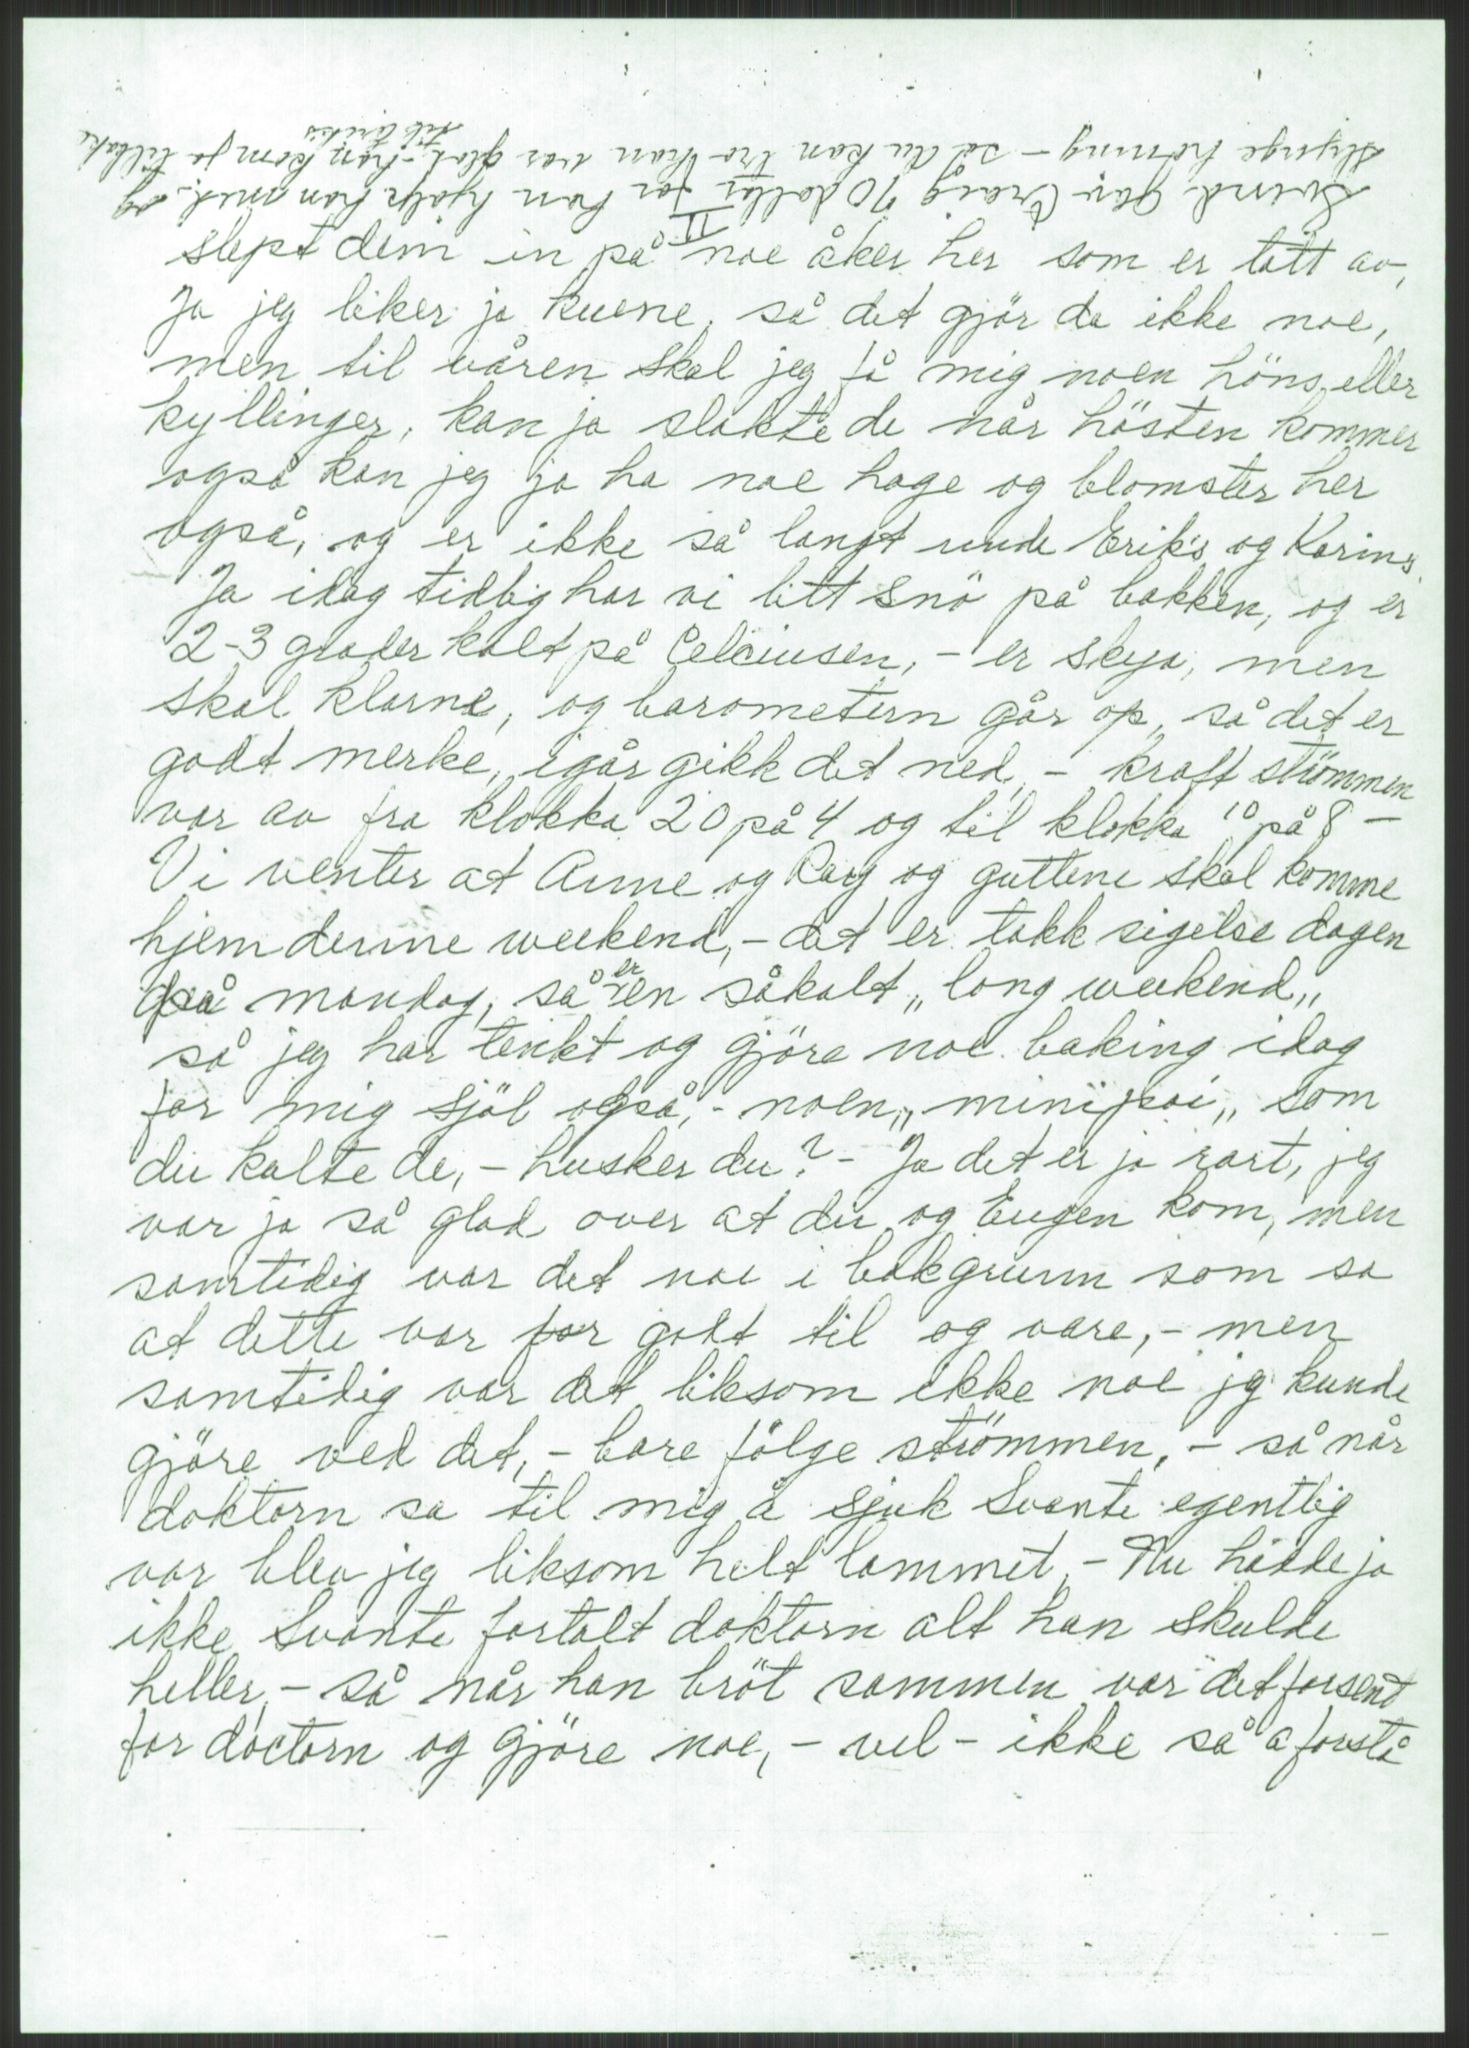 Svend gav Craig 70 dollar for han hjalp han med og
slynge honing - så du kan tro han var glad, - han kom jo tilbake
til Eriks
II
slept dem in på noe åker her som er tatt av,
Ja jeg liker jo kuene, så det gjör da ikke noe,
men til våren skal jeg få mig noen höns eller
kyllinger, kan jo slakte de når hösten kommer
også kan jeg jo ha noe hage og blomster her
også, og er ikke så langt unde Erik's og Karins.
Ja idag tidlig har vi litt snö på bakken, og er
2-3 grader kalt på Celciusen, - er skya, men
skal klarne, og barometern går op, så det er
godt merke, igår gikk det ned, - kraft strömmen
var av fra klokka 20 på 4 og til klokka 10 på 8 -
Vi venter at Anne og Ray og guttene skal komme
hjem denne weekend, - det er takk sigelse dagen
på mandag, så er en såkalt „long weekend„
så jeg har tenkt og gjöre noe baking idag
for mig sjöl også, - noen „minipai„ som
du kalte de, - husker du? - Ja det er jo rart, jeg
var jo så glad over at du og Eugen kom, men
samtidig var det noe i bakgrunn som sa
at dette var for godt til og vare, - men
samtidig var det liksom ikke noe jg kunde
gjöre ved det, - bare fölge strömmen, - så når
doktorn sa til mig å sjuk Svante egentlig
var blev jeg liksom helt lammet, - Nu hadde jo
ikke Svante fortalt doktorn alt han skulde
heller, - så når han bröt sammen var det forsent
for doctorn og gjöre noe, - vel - ikke så å forstå